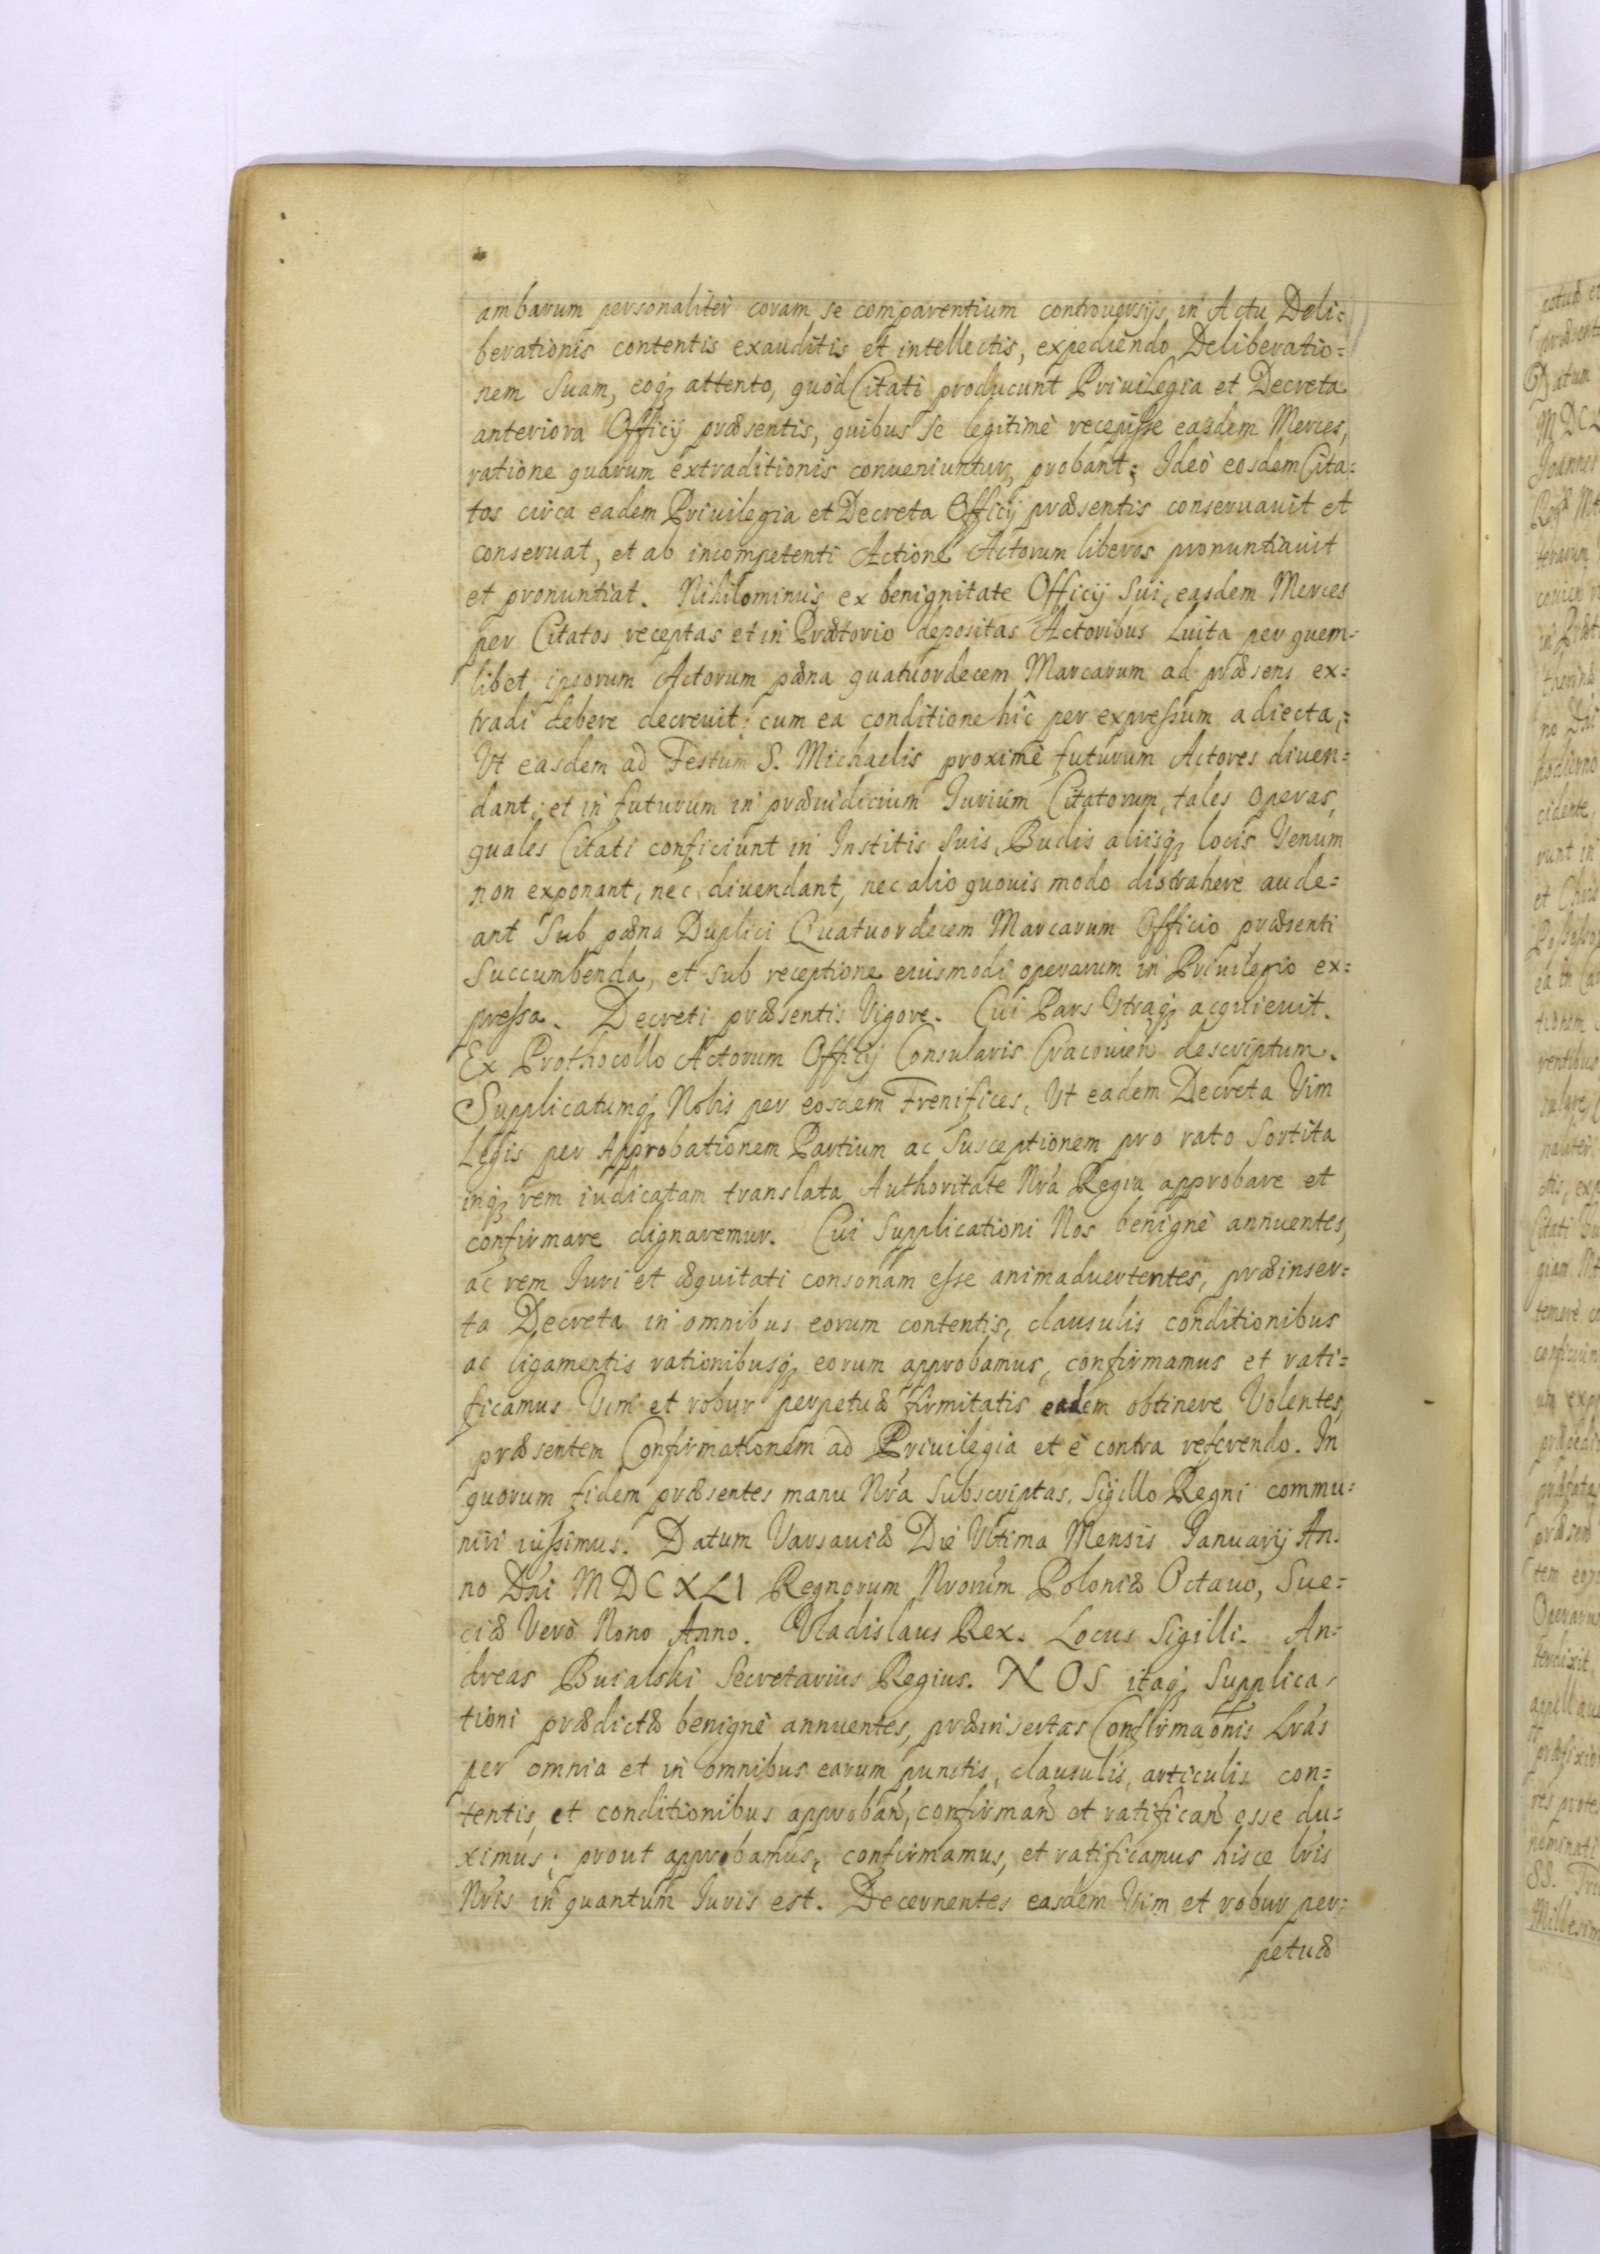 ambarum personaliter coram se comparentium controuersijs in Actu Deli=
berationis contentis exauditis et intellectis, expediendo Deliberatio=
nem Suam, eoq₃ attento, quòd Citati producunt Priuilegia et Decreta
anteriora Officij præsentis, quibus se legitimè recepisse easdem Merces,
ratione quarum extraditionis conueniuntur, probant; Ideò eosdem Cita=
tos circa eadem Priuilegia et Decreta Officij præsentis conseruauit et
conseruat, et ab incompetenti Actione Actorum liberos pronuntiauit
et pronuntiat. Nihilominùs ex benignitate Officij Sui, easdem Merces
per Citatos receptas et in Prætorio depositas Actoribus Luita per quem=
libet ipsorum Actorum pæna quatuordecem Marcarum ad præsens ex=
tradi debere decreuit: cum ea conditione hîc per expressum adiecta;
Ut easdem ad Festum S. Michaelis proximè futurum Actores diuen=
dant; et in futurum in præiudicium Iurium Citatorum, tales operas,
quales Citati conficiunt in Institis Suis, Budis aliisq₃ locis Venum
non exponant, nec diuendant, nec alio quouis modo distrahere aude=
ant Sub pæna Duplici Quatuordecem Marcarum Officio præsenti
Succumbenda, et sub receptione eiusmodi operarum in Priuilegio ex=
pressa. Decreti præsentis Vigore. Cui Pars Utraq₃ acquieuit.
Ex Prothocollo Actorum Officij Consularis Cracouien̄ descriptum.
Supplicatumq₃ Nobis per eosdem Frenifices, Ut eadem Decreta Vim
Legis per Approbationem Partium ac Susceptionem pro rato Sortita
inq₃ rem iudicatam translata Authoritate Nr̃a Regia approbare et
confirmare dignaremur. Cui Supplicationi Nos benignè annuentes,
ac rem Iuri et æquitati consonam esse animaduertentes, præinser=
ta Decreta in omnibus eorum contentis, clausulis conditionibus
ac ligamentis rationibusq₃ eorum approbamus, confirmamus et rati=
ficamus Vim et robur perpetuæ firmitatis eadem obtinere Volentes,
præsentem Confirmationem ad Priuilegia et è contra referendo. In
quorum fidem præsentes manu Nr̃a Subscriptas, Sigillo Regni commu=
niri iussimus. Datum Varsauiæ Die Ultima Mensis Ianuarij An=
no Dn̄i MDCXLI Regnorum Nrorũm Poloniæ Octauo, Sue=
ciæ Verò Nono Anno. Vladislaus Rex. Locus Sigilli. An=
dreas Buialski Secretarius Regius. NOS itaq₃ Supplica=
tioni prædictæ benignè annuentes, præinsertas Confirmaõnis Lrãs
per omnia et in omnibus earum punctis, clausulis, articulis con=
tentis, et conditionibus approban̄, confirman̄ et ratifican̄ esse du=
ximus; prout approbamus, confirmamus, et ratificamus hisce lris
Nris in quantum Iuris est. Decernentes easdem Vim et robur per=
petuæ